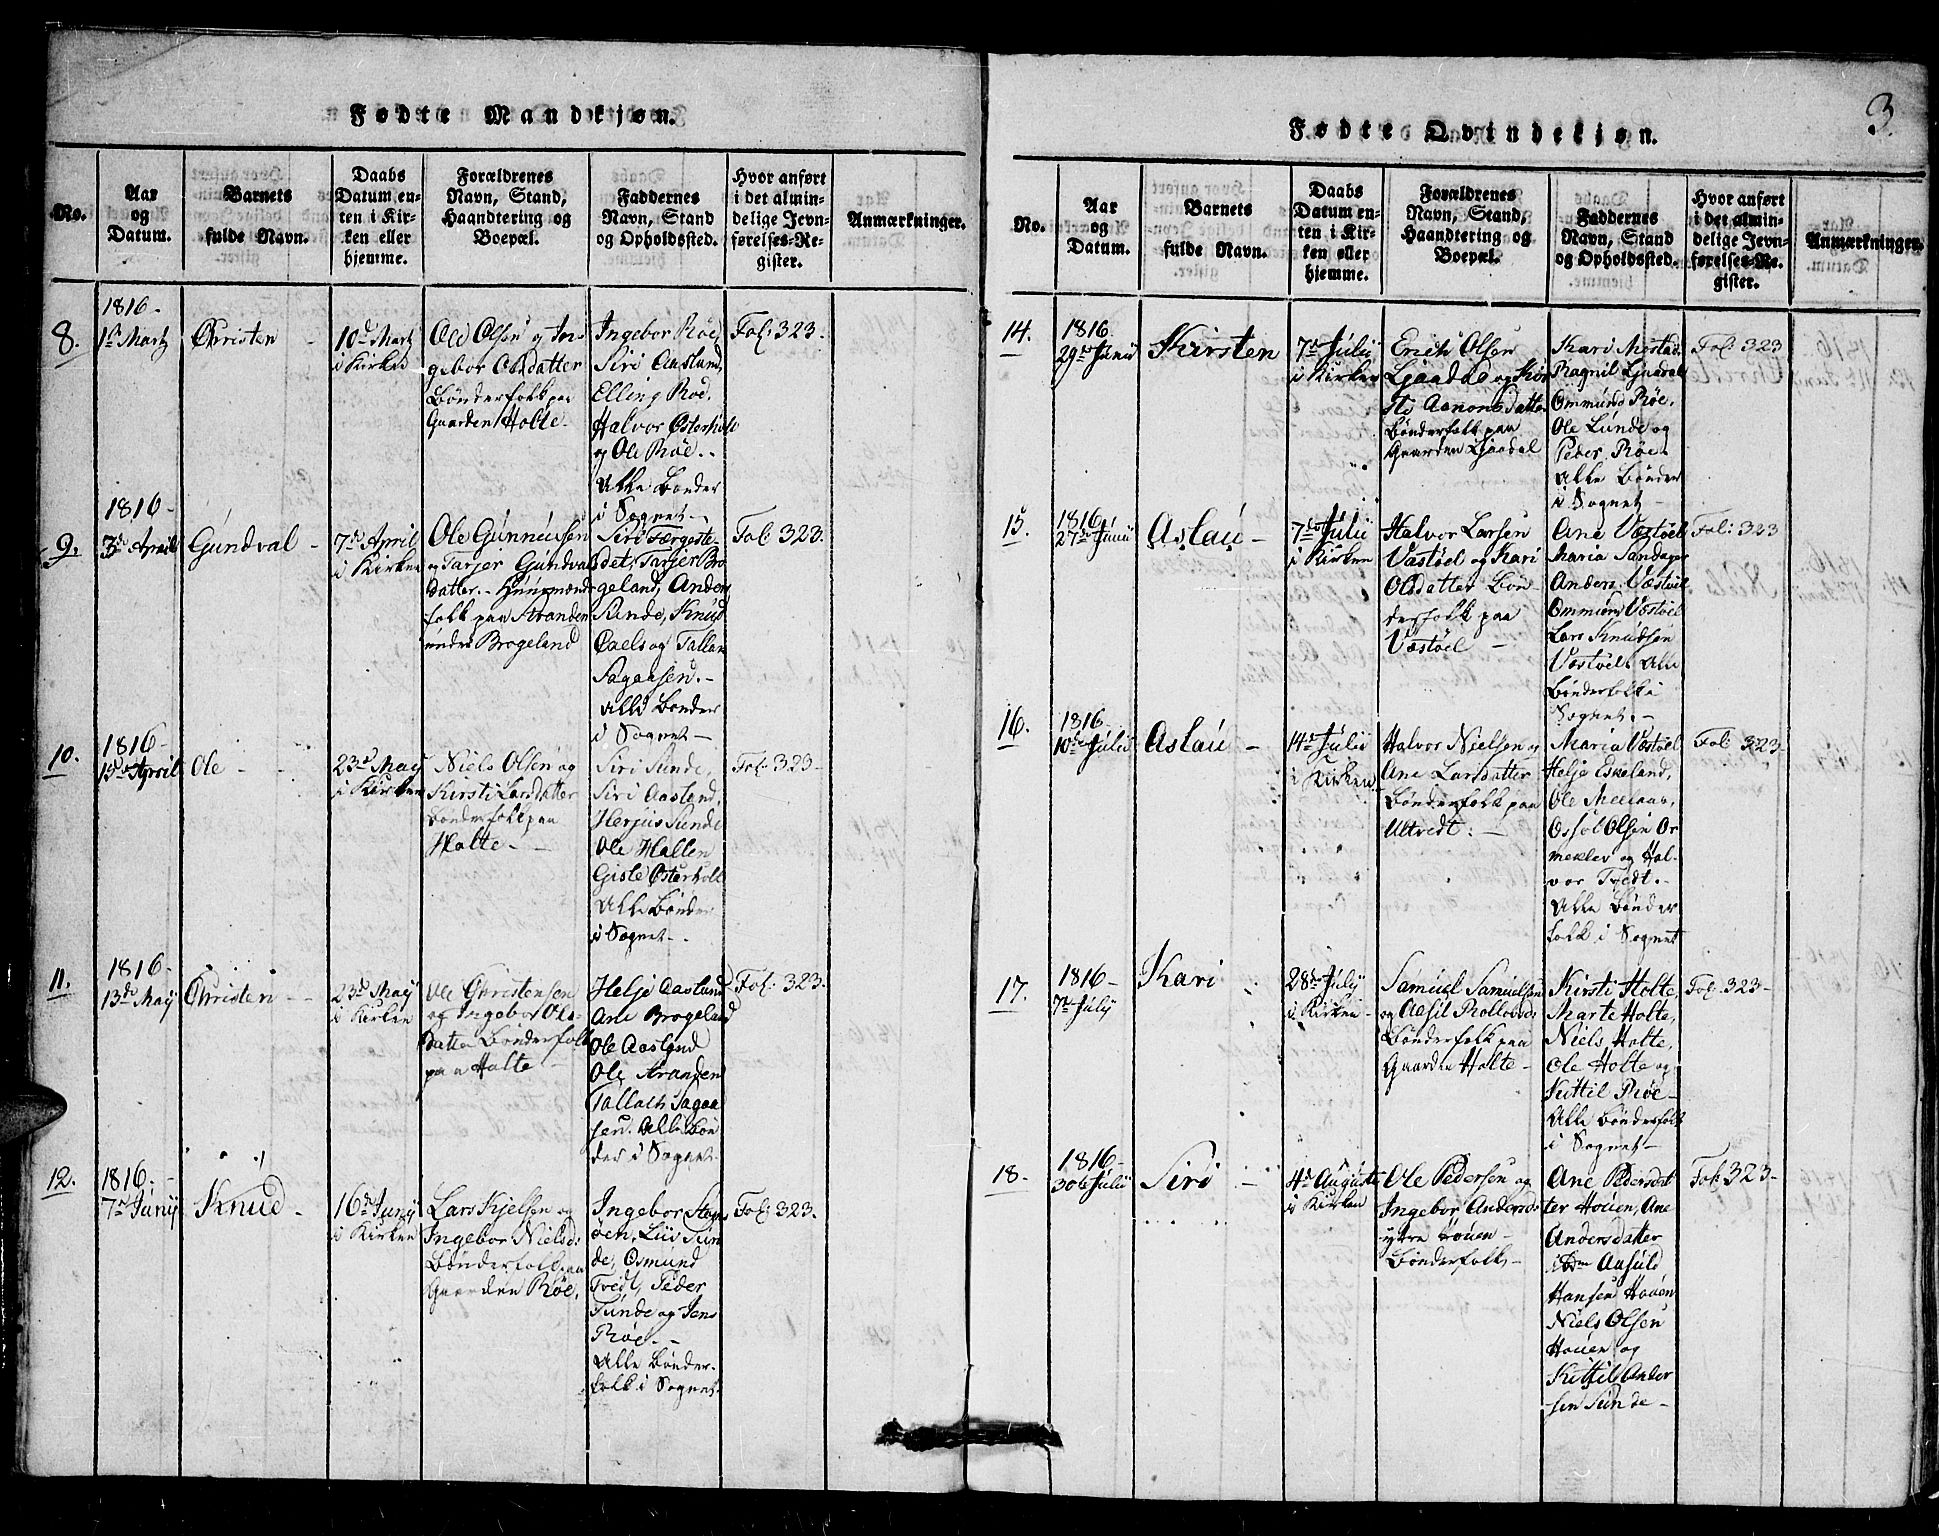 3.
Fødte Mandkjøn.
No.
Aar
og
Datum.
Barnets
fulde Navn.
Daabs
Datum en-
ten i Kir-
ken eller
hjemme.
Forældrenes
Navn, Stand,
Haandtering og
Boepæl.
Faddernes
Navn, Stand
og Opholdssted.
Hvor anført
i det almin-
delige Jevn-
førelses-Re-
gister.
Anmærkninger.
8.
1816-
1de Martz
Christen
10d Martz
i Kirken
Ole Olsen og In-
gebor Olsdatter
Bønderfolk paa
Gaarden Holte
Ingebor Røe,
Siri Aaslund,
Elling Roe,
Halvor Osterholt
og Ole Røe.
Alle Bønder
i Sognet-
Fol: 323.
9.
1816-
3de April
Gundval
7de April
i Kirken
Ole Gunneusen
og Tarjer Gundvals
datter.- Huusmænds
folk paa Stranden
under Brogeland
Siri Færgeste-
det, Tarjer Bro
geland, Anders
Sunde, Knud
og Tallak
Sagaasen.-
Alle Bønder
i Sognet-
Fol: 323.
10.
1816-
15de April
Ole
23d May
i Kirken
Niels Olsen og
Kirsti Larsdatter
bønderfolk paa
Holte
Siri Sunde,
Siri Aaslund,
Herjus Sunde
Ole Holten
Gisle Osterholt
Alle Bønder
i Sognet-
Fol: 323-
11.
1816-
13de Maij
Christen
23d May
i Kirken
Ole Christensen
og Ingebor Ols-
datter Bønderfolk
paa Holte
Helje Aaslund
Ane Brogeland
Ole Aaslund
Ole Stranden
Tallach Sagaa
sen. Alle Bøn
der i Sognet
Fol: 323.
12.
1816.
7de Junij
Knud
16de Junij
i Kirken
Lars Kjelsen og
Ingebor Nielsd:
Bønderfolk paa
Gaarden Røe.
Ingebor
øen, Liv Sun
de, Osmund
Tvedt, Peder
Sunde og Jens
Røe.-
Alle Bønder-
folk i Sognet
Fol: 323.
Fødte Qvindekjøn.
No.
Aar
og
Datum.
Barnets
fulde Navn.
Daabs
Datum en-
ten i Kir-
ken eller
hjemme.
Forældrenes
Navn, Stand,
Haandtering og
Boepæl.
Faddernes
Navn, Stand
og Opholdssted.
Hvor anført
i det almin-
delige Jevn-
førelses-Re-
gister.
Anmærkninger.
14.
1816.
29de Junii
Kirsten
7de Julii
i Kirken
Erich Olsen
Ljaadal og Kir
sti Aanonsdatter
Bønderfolk paa
Gaarden Ljaadal
Kari Mestad
Ragnil Ljaadal
Ommund Røe,
Ole Lunde og
Peder Røe
Alle Bønder
i Sognet-
Fol: 323
15.
1816
27de Junii
Aslau
7de Julii
i Kirken
Halvor Larsen
Væstøel og Kari
Olsdatter Bøn
derfolk paa
Væstøel
Ane Væstøel
Maria Sandager
Anders Væstøel
Ommund Væstøel
Lars Knudsen
Væstøel. Alle
Bønderfolk i
Sognet.-
Fol: 323
16.
1816
10de Julii
Aslau
14de Julii
i Kirken
Halvor Nielsen og
Ane Larsdatter
Bønderfolk paa
Ultvedt:
Maria Væstøel
Helje Eskeland,
Ole Meelaas,
Osjol Olsen Or
meklev og Hal-
vor Tvedt.-
Alle Bønder
folk i Sognet
Fol: 323.
17.
1816-
7de July
Kari
28de July
i Kirken
Samuel Samuelsen
og Aasil Rollovsd:
Bønderfolk paa
Gaarden Holte-
Kirsti Holte,
Marte Holte,
Niels Holte,
Ole Holte og
Kittil Røe
Alle bønderfolk
i Sognet-
Fol: 323-
18.
1816-
30de Julii
Siri
4de Auguste
i Kirken
Ole Pedersen og
Ingebor Andersd:
ytre Houen-
Bønderfolk-
Ane Pedersdat
ter Houen, Ane
Andersdatter
ibdm Ansuld
Hansen Houen
Niels Olsen
Houen og
Kittil Ander
sen Sunde-
Fol: 323-